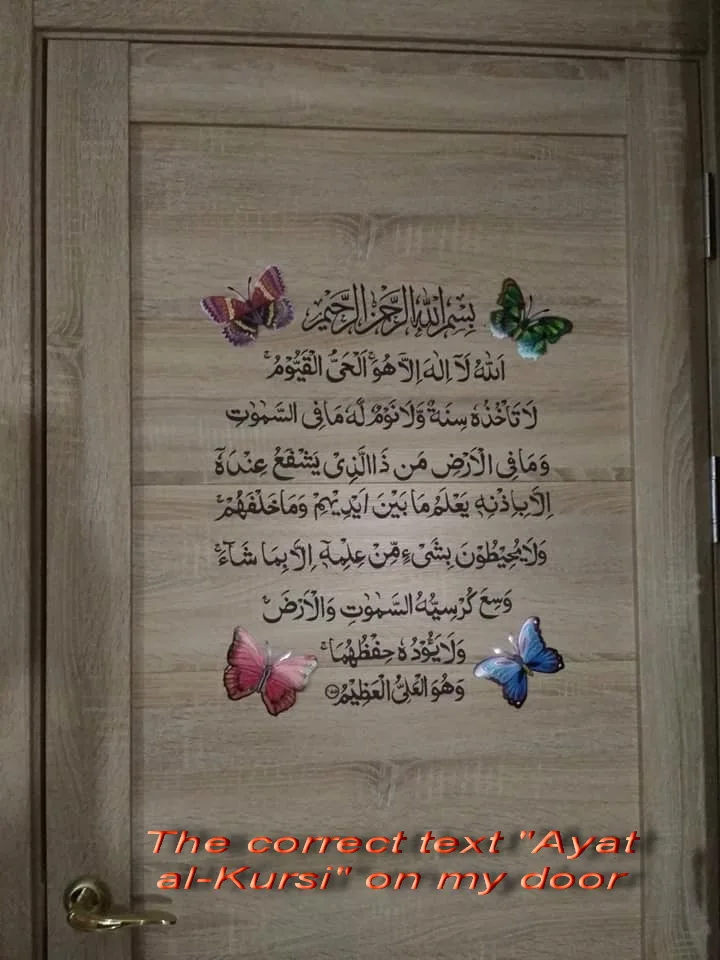 بِسْمِ اللهِ الرَّحْمٰنِ الرَّحِيْمِ
اَللهُ لَآ اِلٰهَ اِلَّا هُوَ ۚ اَلْحَىُّ الْقَيُّوْمُ ۚ
لَا تَاْخُذُهٗ سِنَةٌ وَّلَا نَوْمٌ لَهٗ مَا فِى السَّمٰوٰتِ
وَمَا فِى الْاَرْضِ مَن ذَا الَّذِىْ يَشْفَعُ عِنْدَهٗٓ
اِلَّا بِاِذْنِهٖ يَعْلَمُ مَا بَيْنَ اَيْدِيْهِمْ وَمَا خَلْفَهُمْ ۚ
وَلَا يُحِيْطُوْنَ بِشَىْءٍ مِّنْ عِلْمِهٖٓ اِلَّا بِمَا شَآءَ ۚ
وَسِعَ كُرْسِيُّهُ السَّمٰوٰتِ وَالْاَرْضَ ۚ
وَلَا يَـُٔوْدُهٗ حِفْظُهُمَا ۚ
وَهُوَ الْعَلِىُّ الْعَظِيْمُ
The correct text "Ayat
al-Kursi" on my door